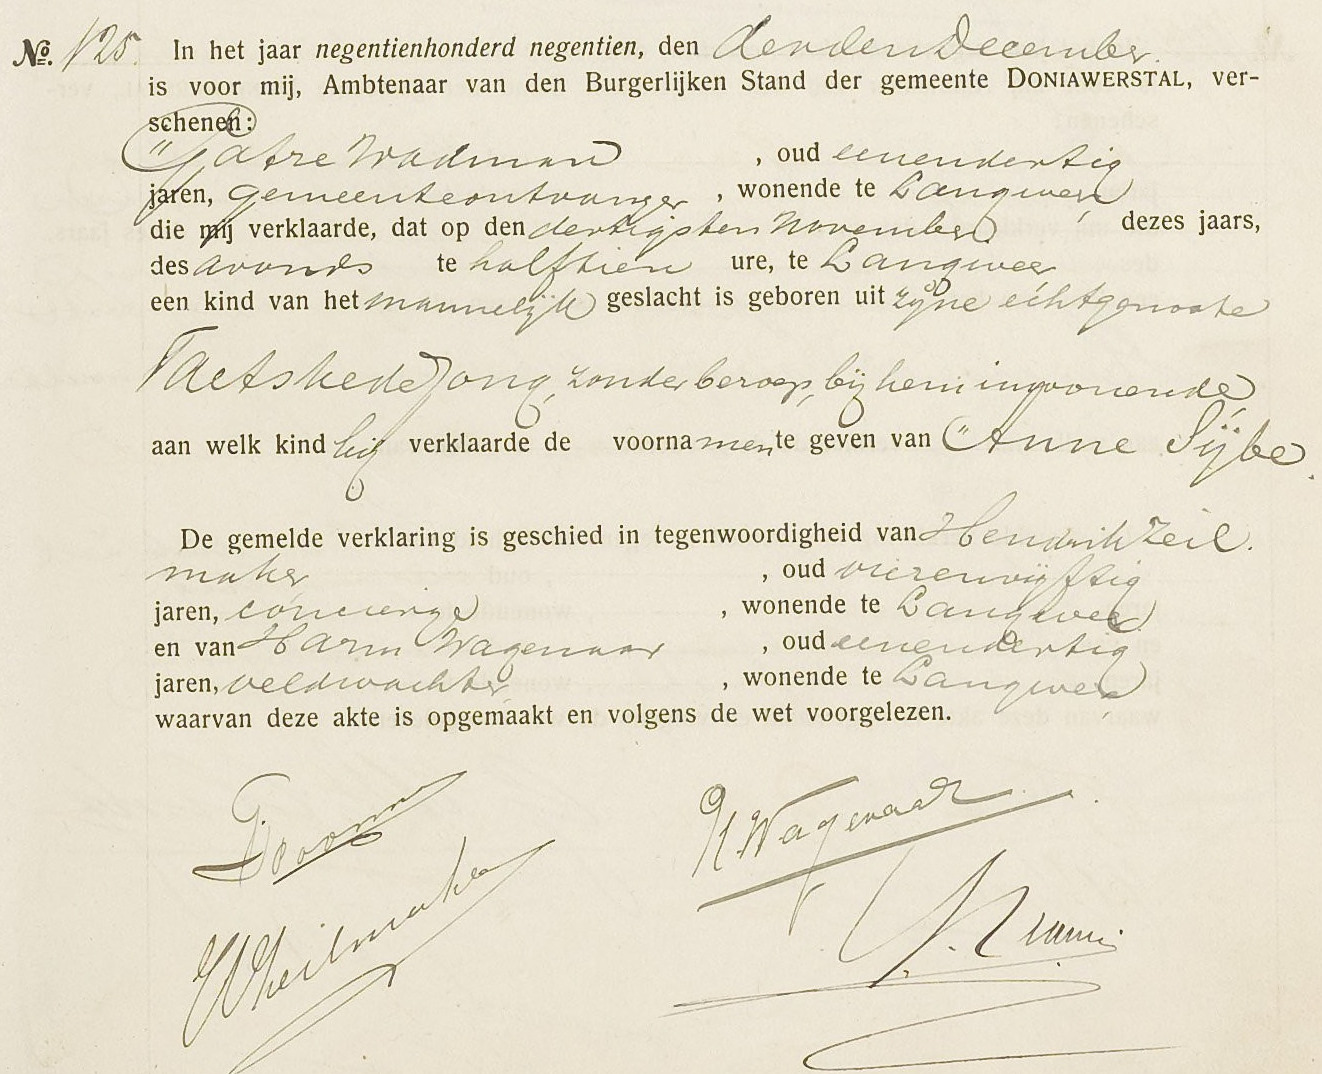 No. 125. In het jaar negentienhonderd negentien, den derden December.
is voor mij, Ambtenaar van den Burgerlijken Stand der gemeente DONIAWERSTAL, ver-
schenen:
Watze Wadman, oud eenendertig
jaren, gemeenteontvanger, wonende te Langweer
die mij verklaarde, dat op den dertigsten November dezes jaars,
des avonds te halftien ure, te Langweer
een kind van het mannelijk geslacht is geboren uit zijne echtgenoote
Taetske de Jong, zonder beroep, bij hem inwonende
aan welk kind hij verklaarde de voornamen te geven van "Anne Sijbe.
De gemelde verklaring is geschied in tegenwoordigheid van Hendrik Zeil-
maker, oud vierenvijftig
jaren, concierge, wonende te Langweer
en van Harm Wagenaar, oud eenendertig
jaren, veldwachter, wonende te Langweer,
waarvan deze akte is opgemaakt en volgens de wet voorgelezen.
H Wagenaar
H Zeilmaker